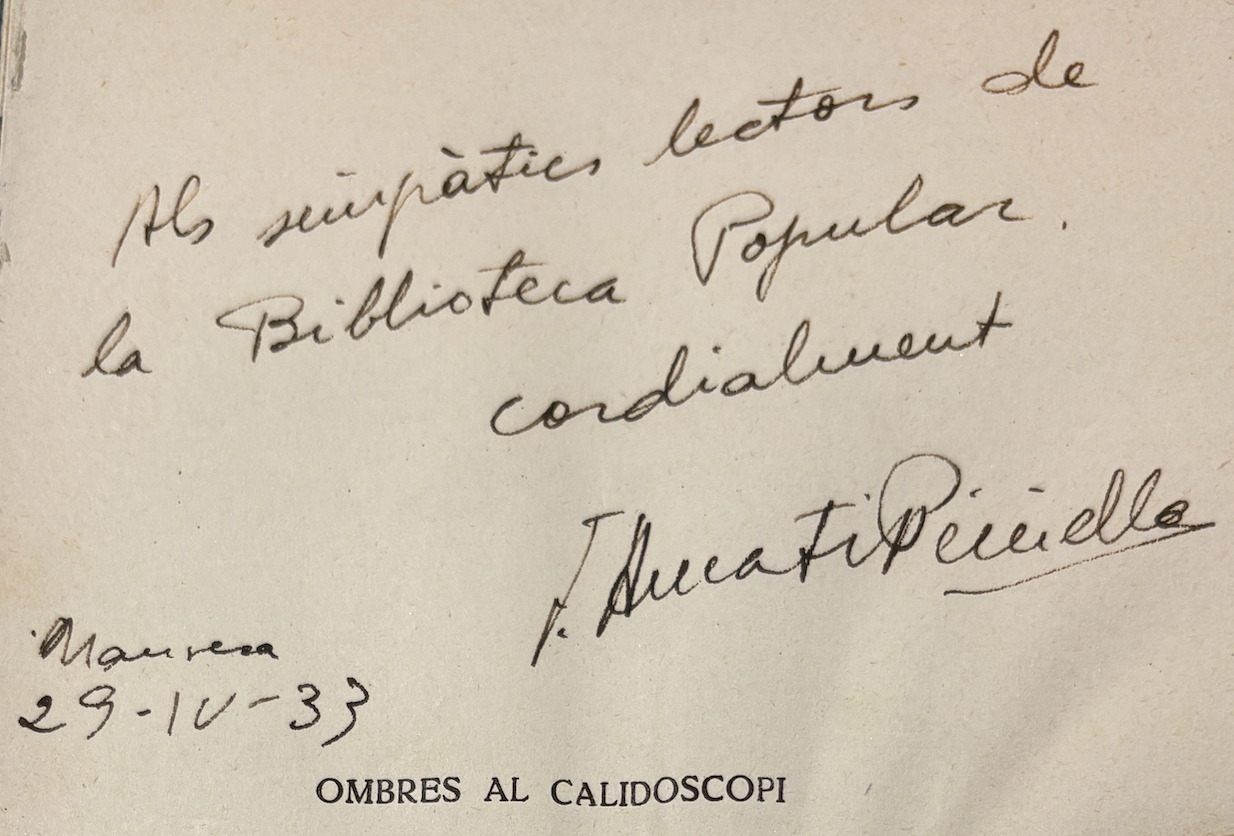 Als simpàtics lectors de
la Biblioteca Popular.
cordialment
J. Amat i Piniella
Manresa
29-IV-33
OMBRES AL CALIDOSCOPI